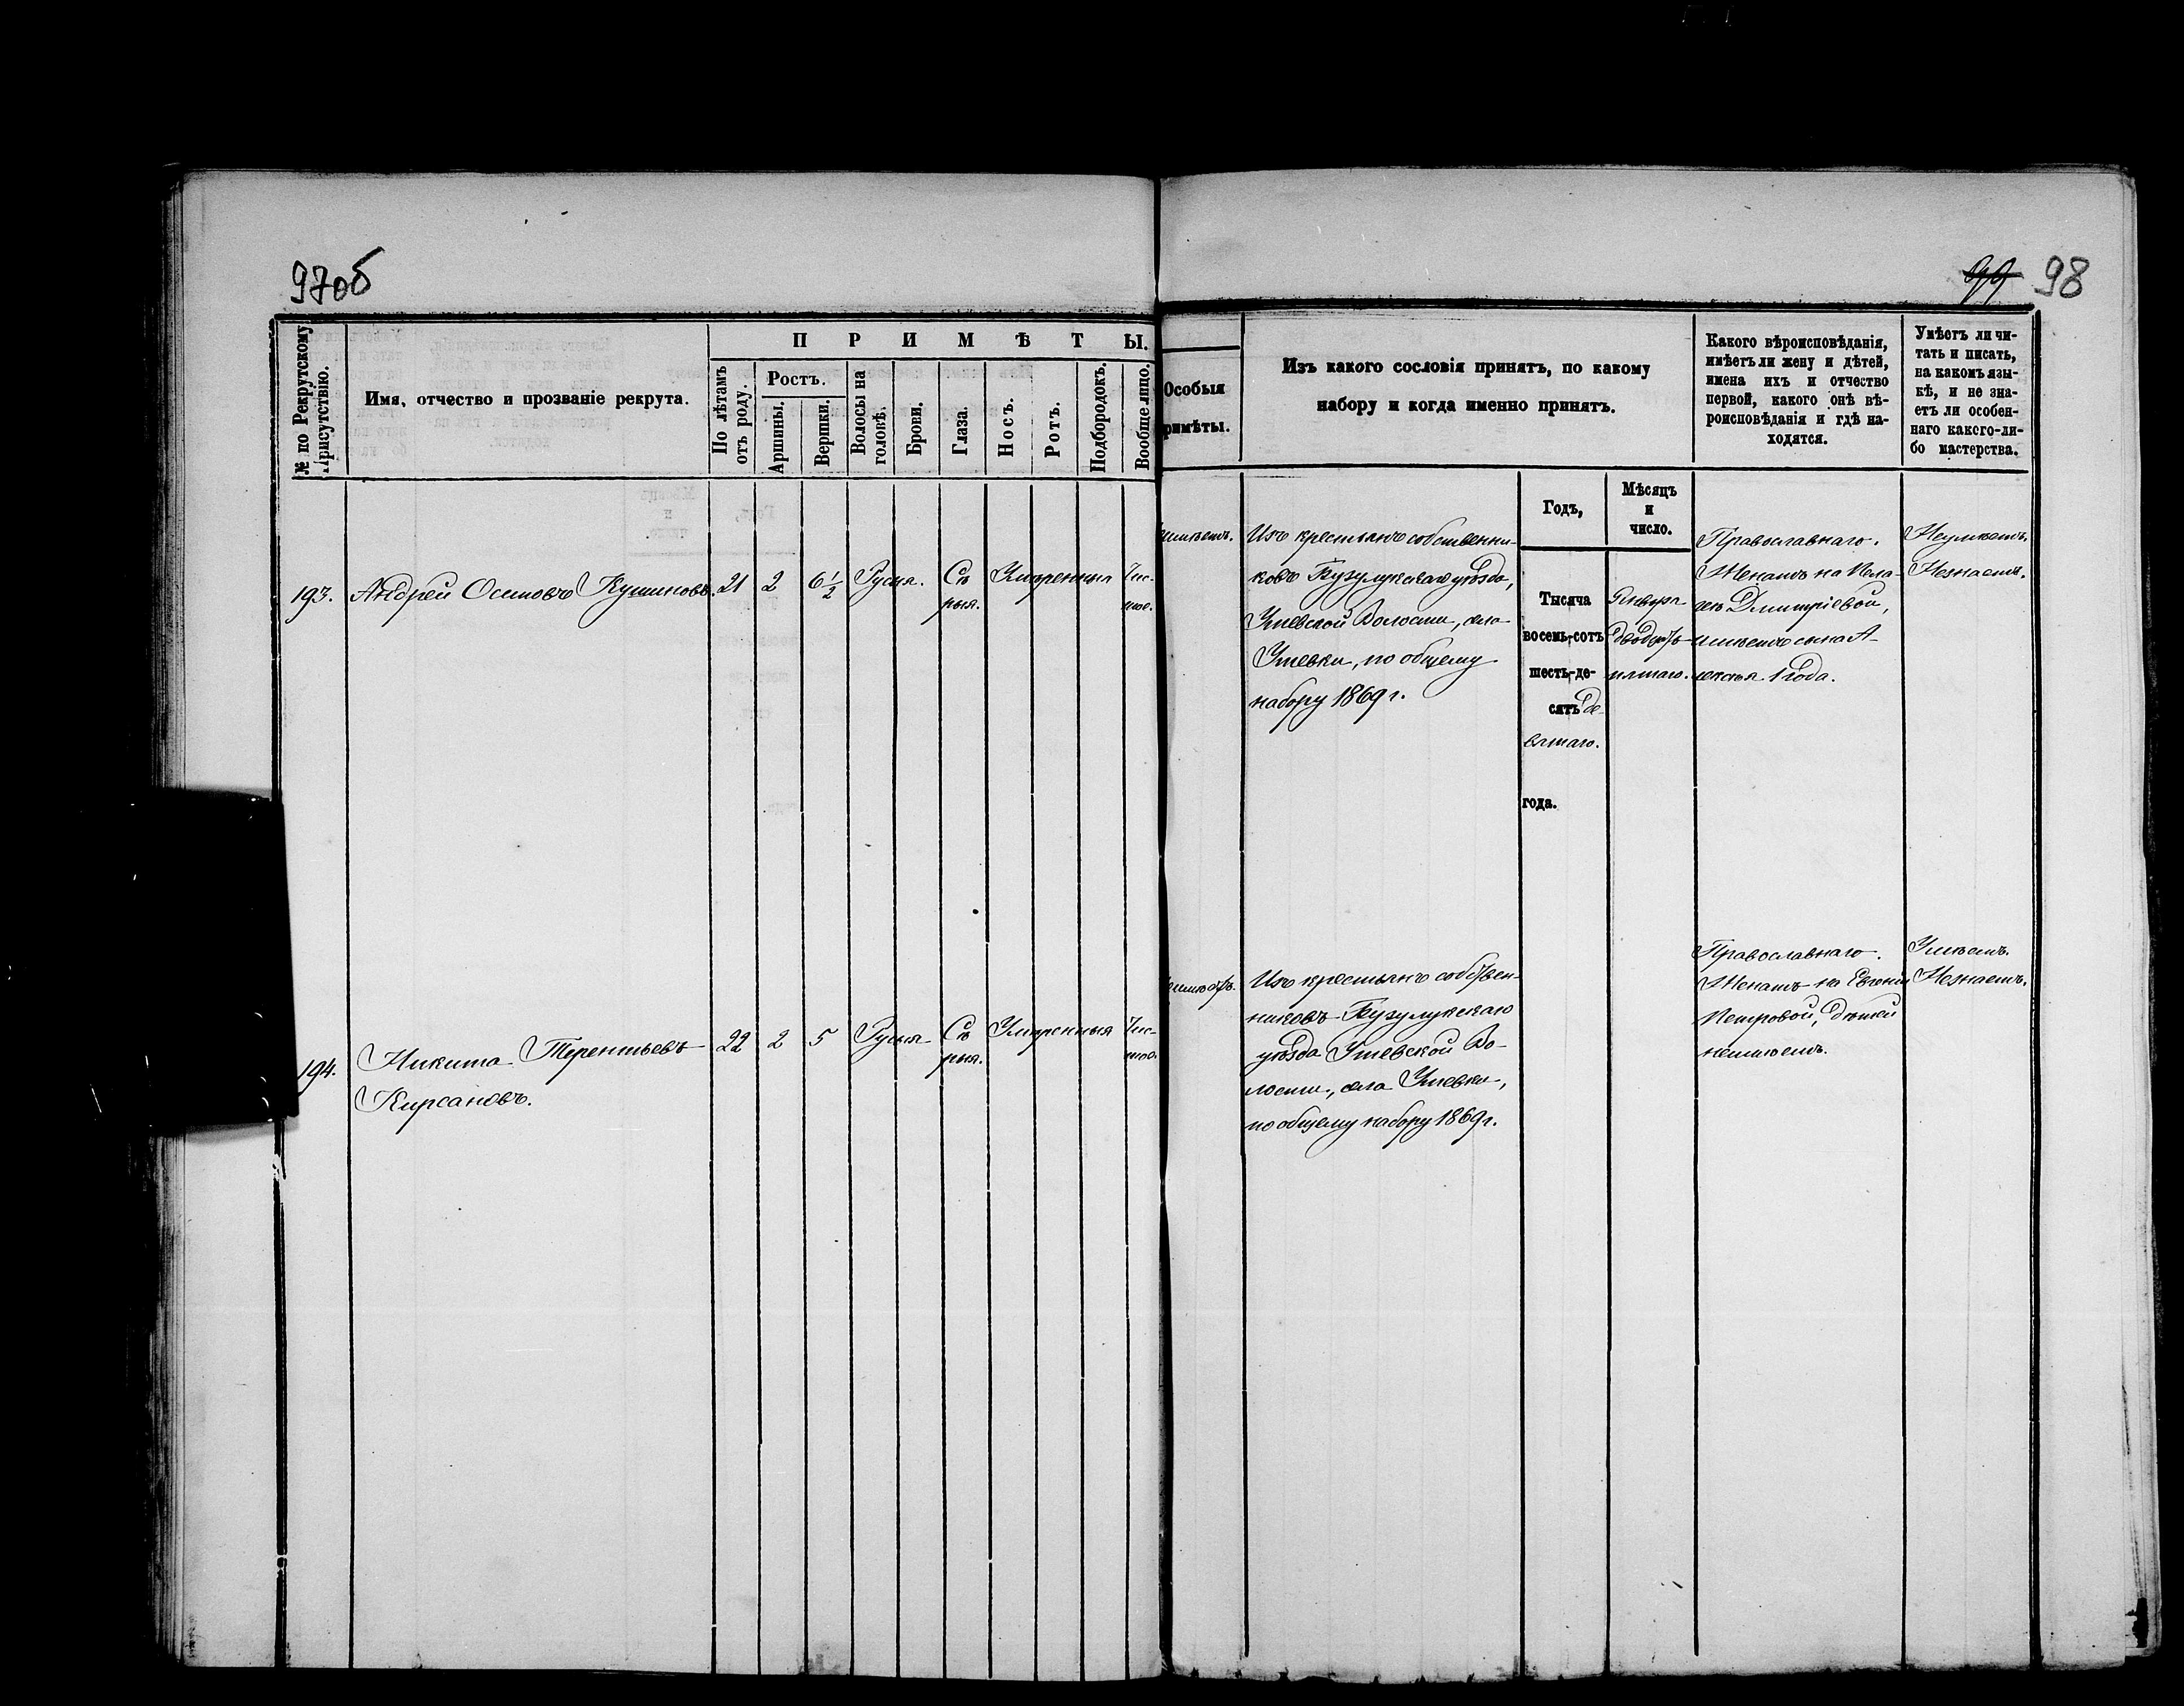 97об
99 98
№ по Рекрутскому Присутствію.
Имя, отчество и прозваніе рекрута.
ПРИМѢТЫ.
По лѣтамъ отъ роду.
Ростъ.
Аршины.
Вершки.
Волосы на головѣ.
Брови.
Глаза.
Носъ.
Ротъ.
Подбородокъ.
Вообще лицо.
Особыя
римѣты.
Изъ какого сословія принятъ, по какому
набору и когда именно принятъ.
Какого вѣроисповѣданія,
имѣетъ ли жену и дѣтей,
имена ихъ и отчество
первой, какого онѣ вѣ-
роисповѣданія и гдѣ на-
ходятся.
Умѣетъ ли чи-
тать и писать,
на какомъ язы-
кѣ, и не зна-
етъ ли особен-
наго какого-ли-
бо мастерства.
Годъ,
Мѣсяцъ
и
число.
193. Андрей Осиповъ Кушиновъ. 21 2 6½ Русыя. Сѣ
рыя. Умѣренныя Чис-
тое.
имѣетъ.
Изъ крестьянъ собственни-
ковъ Бузулукскаго уѣзда,
Утевской Волости, села
Утевки, по общему
набору 1869 г.
Тысяча
восемь-сотъ
шесть-де-
сятъ де-
вятаго.
года.
Января
двадцать
пятаго.
Православнаго.
Женатъ на Пела-
геѣ Дмитріевой,
имѣетъ сына А-
лексѣя 1 года.
Неумѣетъ.
Незнаетъ.
194. Никита Терентьевъ
Кирсановъ.
22 2 5 Русыя Сѣ
рыя. Умѣренныя Чис-
тое.
имѣетъ.
Изъ крестьянъ собствен-
никовъ Бузулукскаго
уѣзда Утевской Во-
лости, села Утевки,
по общему набору 1869 г.
Православнаго.
Женатъ на Евгеніи
Петровой, дѣтей
неимѣетъ.
Умѣетъ.
Незнаетъ.